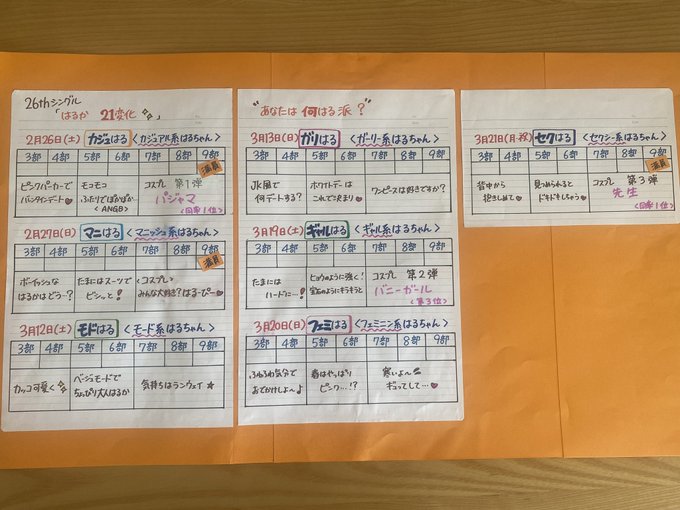 26thシングル
「はるか 21変化」
2月26日(土) カジュはる <カジュアル系はるちゃん>
3部 4部 5部 6部 7部 8部 9部
満員
ピンクパーカーで
バレンタインデート♥
モコモコ
ふたりでぽかぽか
<ANGB>
コスプレ 第1弾
パジャマ
<同率1位>
2月27日(日) マニはる <マニッシュ系はるちゃん>
3部 4部 5部 6部 7部 8部 9部
満員
ボーイッシュな
はるかはどう…?
たまにはスーツで
ビシッと!
<コスプレ>
みんな大好き?はるーぴー♥
3月12日(土) モドはる <モード系はるちゃん>
3部 4部 5部 6部 7部 8部 9部
カッコ可愛く
ベージュモードで
ちょっぴり大人はるか
気持ちはランウェイ★
"あなたは 何はる派?"
3月13日(日) ガリはる <ガーリー系はるちゃん>
3部 4部 5部 6部 7部 8部 9部
JK風で
何デートする?
ホワイトデーは
これで決まり♥
ワンピースは好きですか?
3月19日(土) ギャルはる <ギャル系はるちゃん>
3部 4部 5部 6部 7部 8部 9部
たまには
ハードに…!
ヒョウのように強く!
宝石のようにキラキラと
コスプレ 第2弾
バニーガール
<第3位>
3月20日(日) フェミはる <フェミニン系はるちゃん>
3部 4部 5部 6部 7部 8部 9部
ふわふわ気分で
おでかけしよ〜♪
春はやっぱり
ピンク…!?
寒いよ〜
ギュってして…♥
3月21日(月・祝) セクはる <セクシー系はるちゃん>
3部 4部 5部 6部 7部 8部 9部
満員
背中から
抱きしめて♥
見つめられると
ドキドキしちゃう♥
コスプレ 第3弾
先生
<同率1位>